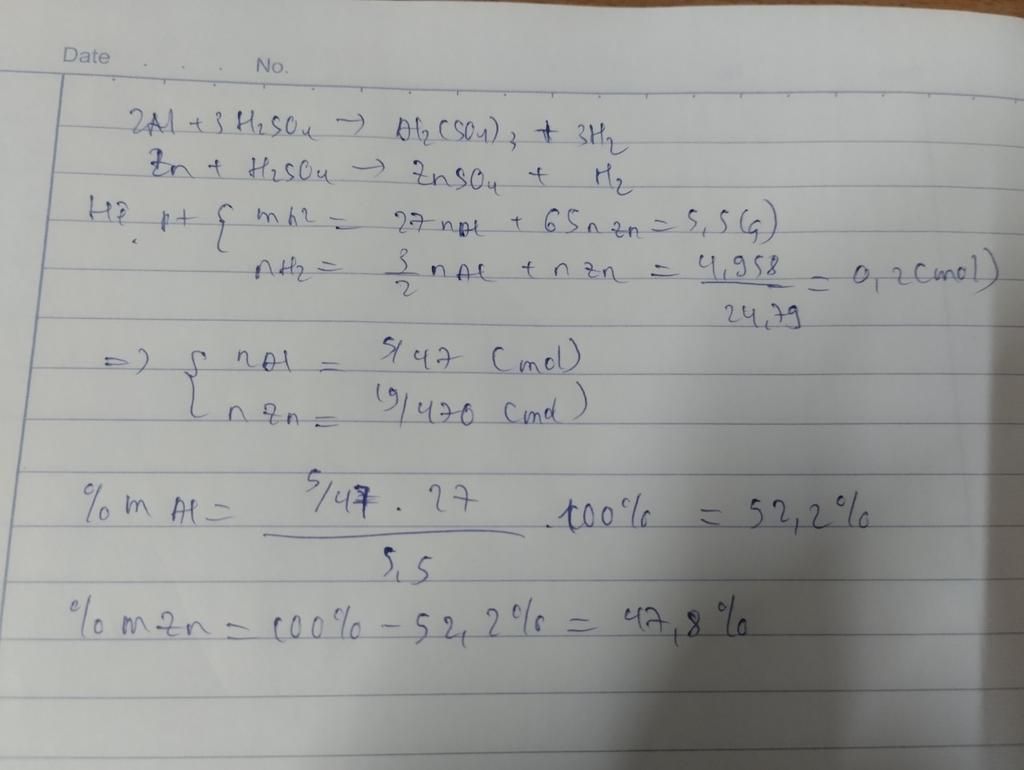 Date . . . . No.
2Al + 3H₂SO₄ → Al₂(SO₄)₃ + 3H₂
Zn + H₂SO₄ → ZnSO₄ + H₂
Hệ pt { mhh = 27nAl + 65nZn = 5,5 (g)
nH₂ = 3/2 nAl + nZn = 4,958/24,79 = 0,2 (mol)
=> { nAl = 5/47 (mol)
nZn = 19/470 (mol)
%mAl = 5/47 . 27 / 5,5 . 100% = 52,2%
%mZn = 100% - 52,2% = 47,8%